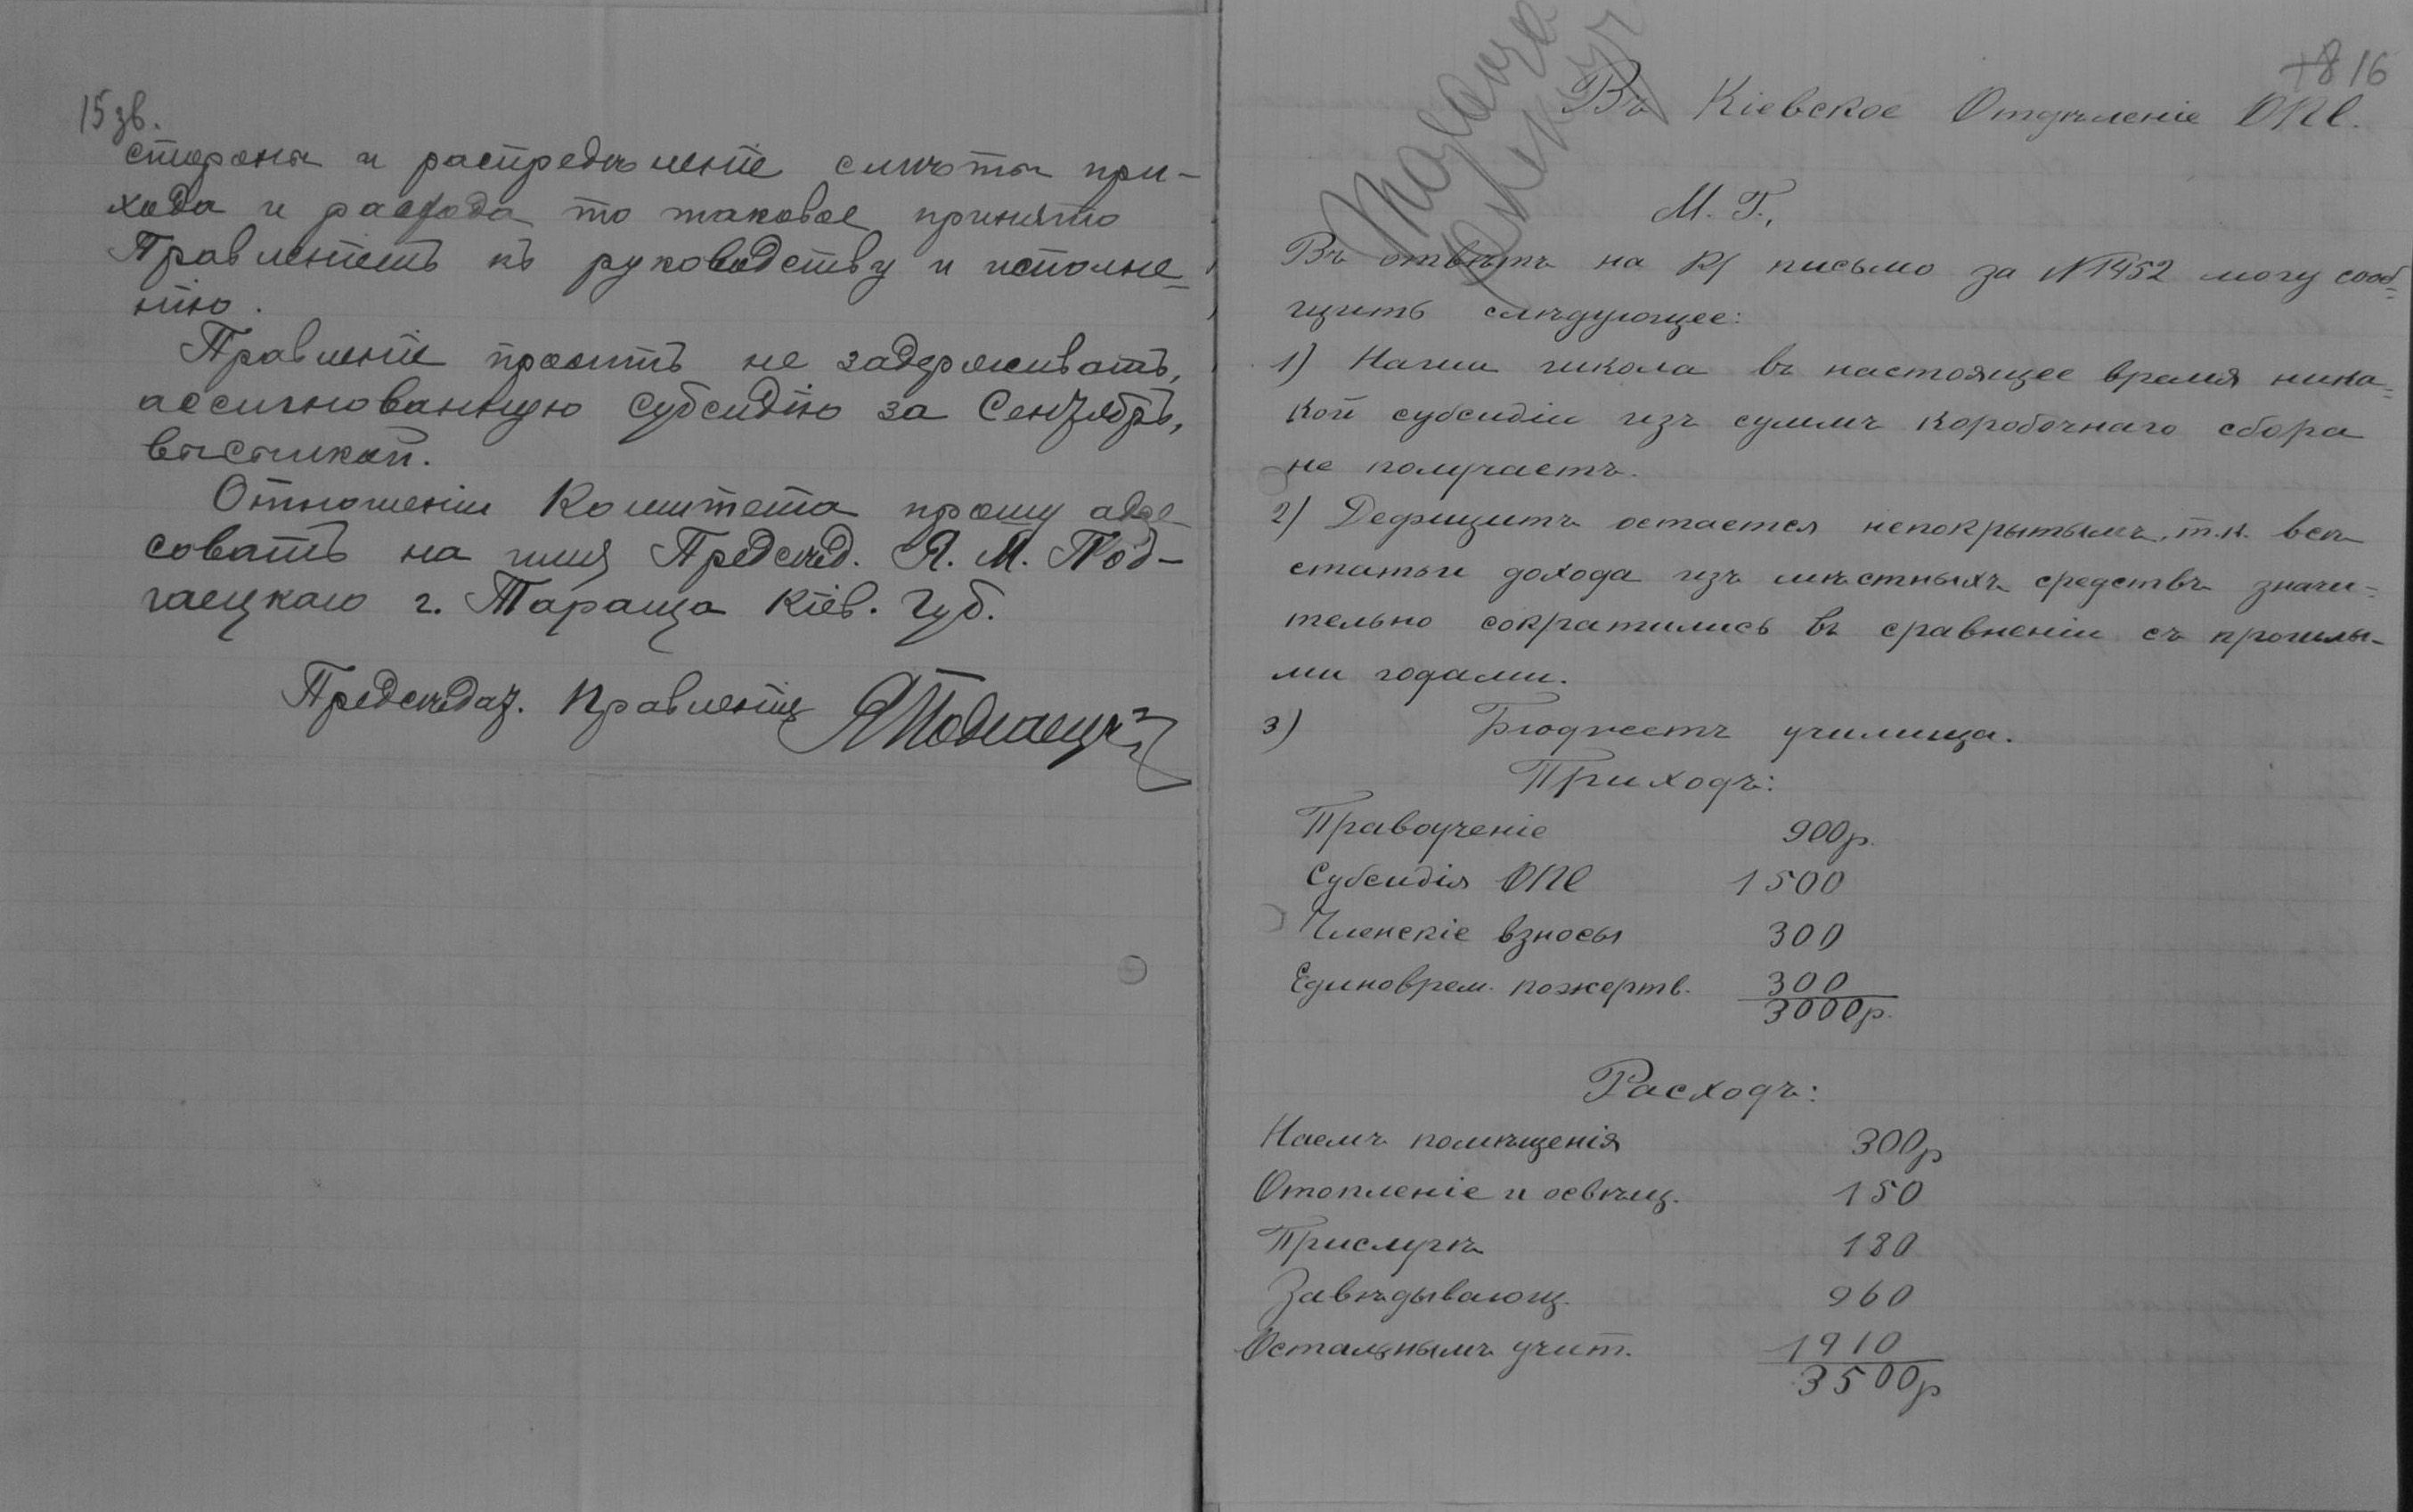 15 зв.
стороны и распредѣленіе смѣты при-
хода и расхода то таковое принято
Правленіемъ къ руководству и исполне=
нію.
Правленіе проситъ не задерживать,
ассигнованную субсидію за Сентябрь,
высылкой.
Отношенія Комитета прошу адре-
совать на имя Предсѣд. Я. М. Под-
гаецкаго г. Тараща Кіев. губ.
Предсѣдат. Правленія ЯПодгаецкій
+8 16
Въ Кіевское Отдѣленіе ОПЕ.
М. Г.,
Въ отвѣтъ на В/ письмо за №1452 могу сооб=
щить слѣдующее:
1) Наша школа въ настоящее время ника=
кой субсидіи изъ суммъ коробочнаго сбора
не получаетъ.
2) Дефицитъ остается непокрытымъ, т.к. всѣ
статьи дохода изъ мѣстныхъ средствъ значи=
тельно сократились въ сравненіи съ прошлы-
ми годами.
3) Бюджетъ училища.
Приходъ:
Правоученіе 900р.
Субсидія ОПЕ 1500
Членскіе взносы 300
Единоврем. пожертв. 300
3000р.
Расходъ:
Наемъ помѣщенія 300р
Отопленіе и освѣщ. 150
Прислугѣ 180
Завѣдывающ. 960
Остальнымъ учит. 1910
3500р